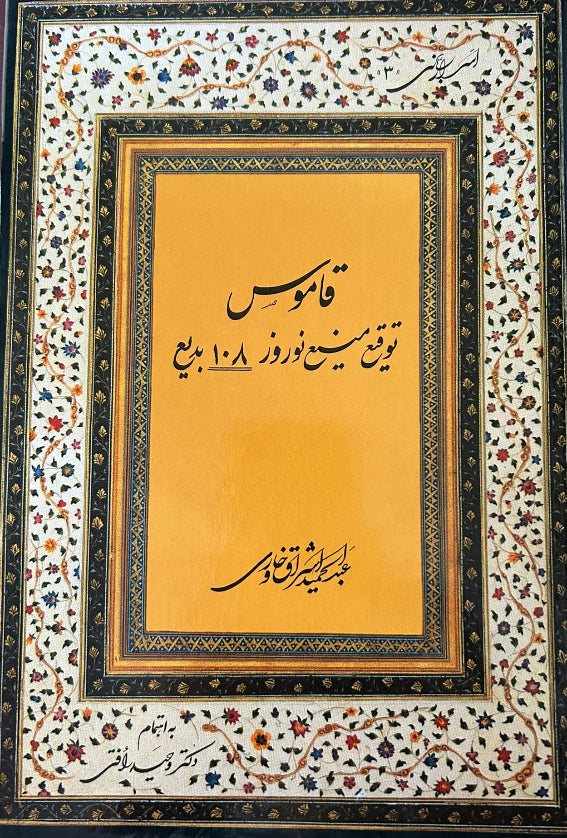 اسرار ربانی ۳
قاموس
توقیع منیع نوروز ۱۰۸ بدیع
عبدالحمید اشراق خاوری
به اهتمام
دکتر وحید رأفتی